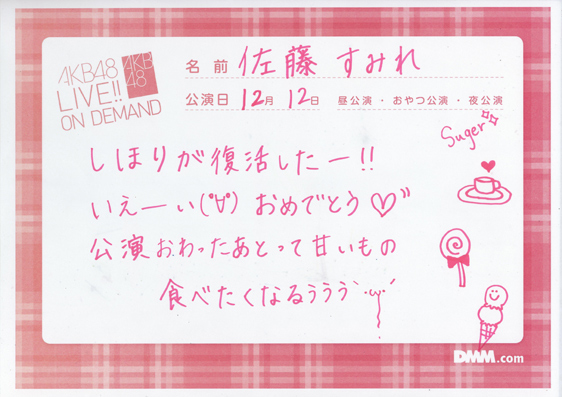 AKB48
LIVE!!
ON DEMAND
AKB
48
名前 佐藤 すみれ
公演日 12月 12日 昼公演・おやつ公演・夜公演
Suger
しほりが復活したー!!
いえーい(°∀°) おめでとう♡"
公演おわったあとって甘いもの
食べたくなるぅぅぅ`・ω・´
DMM.com